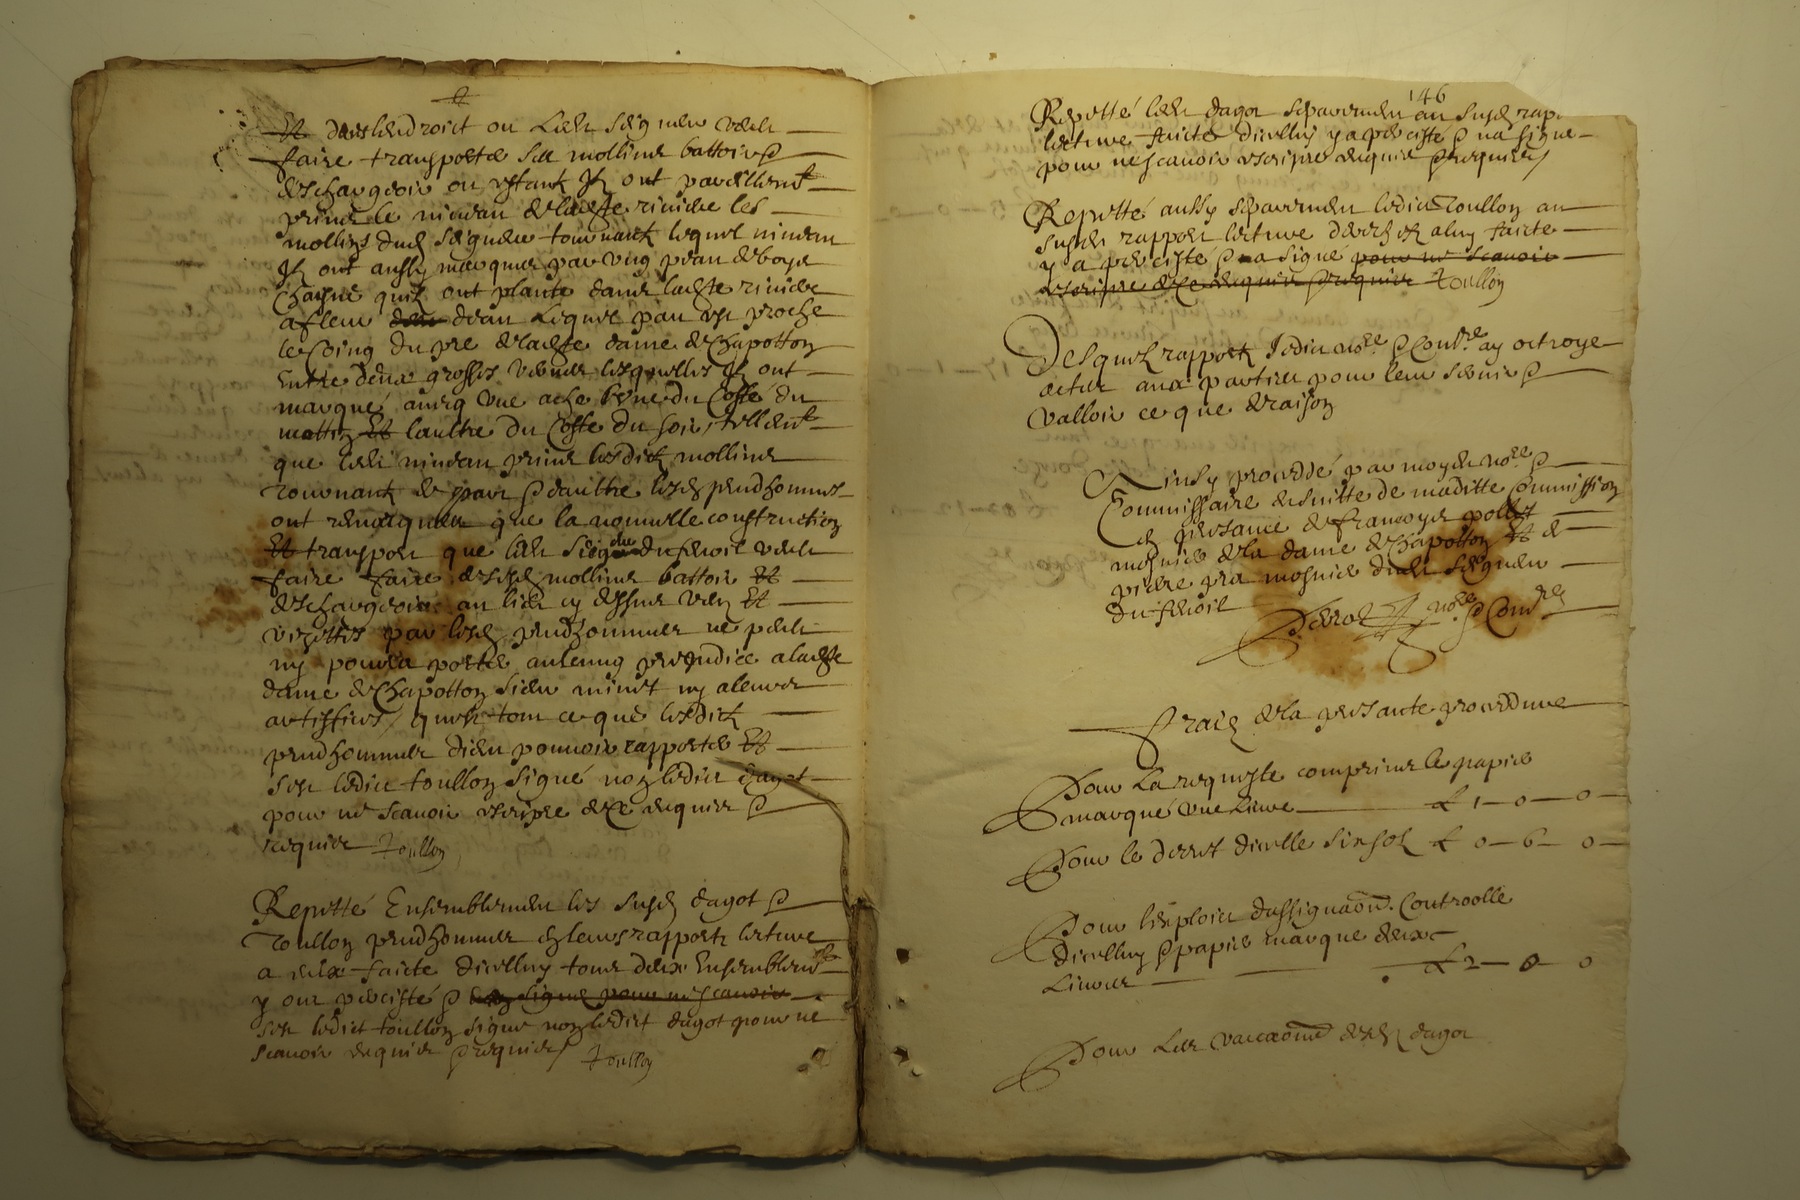 Et dans lendroict ou Ledt Seigneur veult
faire transporter Ses mollins battoirs &
deschargeoir ou estant Ilz ont pareillemt
prins le niveau de ladte riviere les
mollins dud Seigneur tournantz lequel niveau
Ilz ont aussy marqué par ung pau de boys
Chasne quilz ont planté dans ladte riviere
a fleur deau Lequel pau est proche
le Coing du pre de ladte dame de Chapotton
Entre deux grosses vernes lesquelles Ilz ont
marqué avecq une ache lune du Costé du
mattin Et laultre du Costé du soir, tellemt
que ledt niveau prins lesdictz mollins
tournantz de part & daultre lesd preudhommes
ont remarqué que la nouvelle construction
Et transport que ledt Seigneur du veult
faire faire de sesd mollins battoir Et
deschargeoir au lieu cy dessus veu Et
visittés par lesd preudhommes ne peult
ny pourra porter aulcung prejudice a ladte
dame de Chapotton Sieur ny aleurs
artiffices, quest tout ce que lesdictz
preudhommes dient pouvoir rapporter Et
Sest ledict toullon Signé non ledict dagot
pour ne Scavoir escripre de ce enquis &
requis Toullon
Repetté Ensemblement les Susd dagot &
Toullon preudhommes en leurs rapportz lecture
a eulx faicte dicelluy tous deux Ensemblemt
y ont percisté & signé pour ne Scavoir
Sest ledict toullon signé non ledict dagot pour ne
Scavoir enquis & requis Toullon
146
Repetté ledt dagot Separement au Susd rapp
lecture faicte dicelluy y a percisté & na signé
pour ne scavoir escripre enquis & requis
Repetté aussy Separement ledict Toullon au
Susdt rapport lecture a luy faicte
y a percisté & a signé pour ne Scavoir
escripre de ce enquis & requis Toullon
Desquelz rapportz Je dict nore & Comre ay octroyé
actes aux parties pour leur Servir &
valloir ce que de raison
Ainsy procedé par moy dt nore &
Commissaire en suitte de maditte Commission
En presance de francoys pollet
mosnier de la dame de Chapotton Et de
pierre gra mosnier dudt Seigneur
du
nore & Comre
Fraiz de la presante procedure
Pour La requeste comprins le papier
marqué une Livre £ 1 – 0 – 0
Pour le decret dicelle Six solz £ 0 – 6 – 0
Pour lexploict dassignaon Controolle
dicelluy & papier marqué deux
Livres £ 2 – 0 – 0
Pour Les vaccaons desd dagot